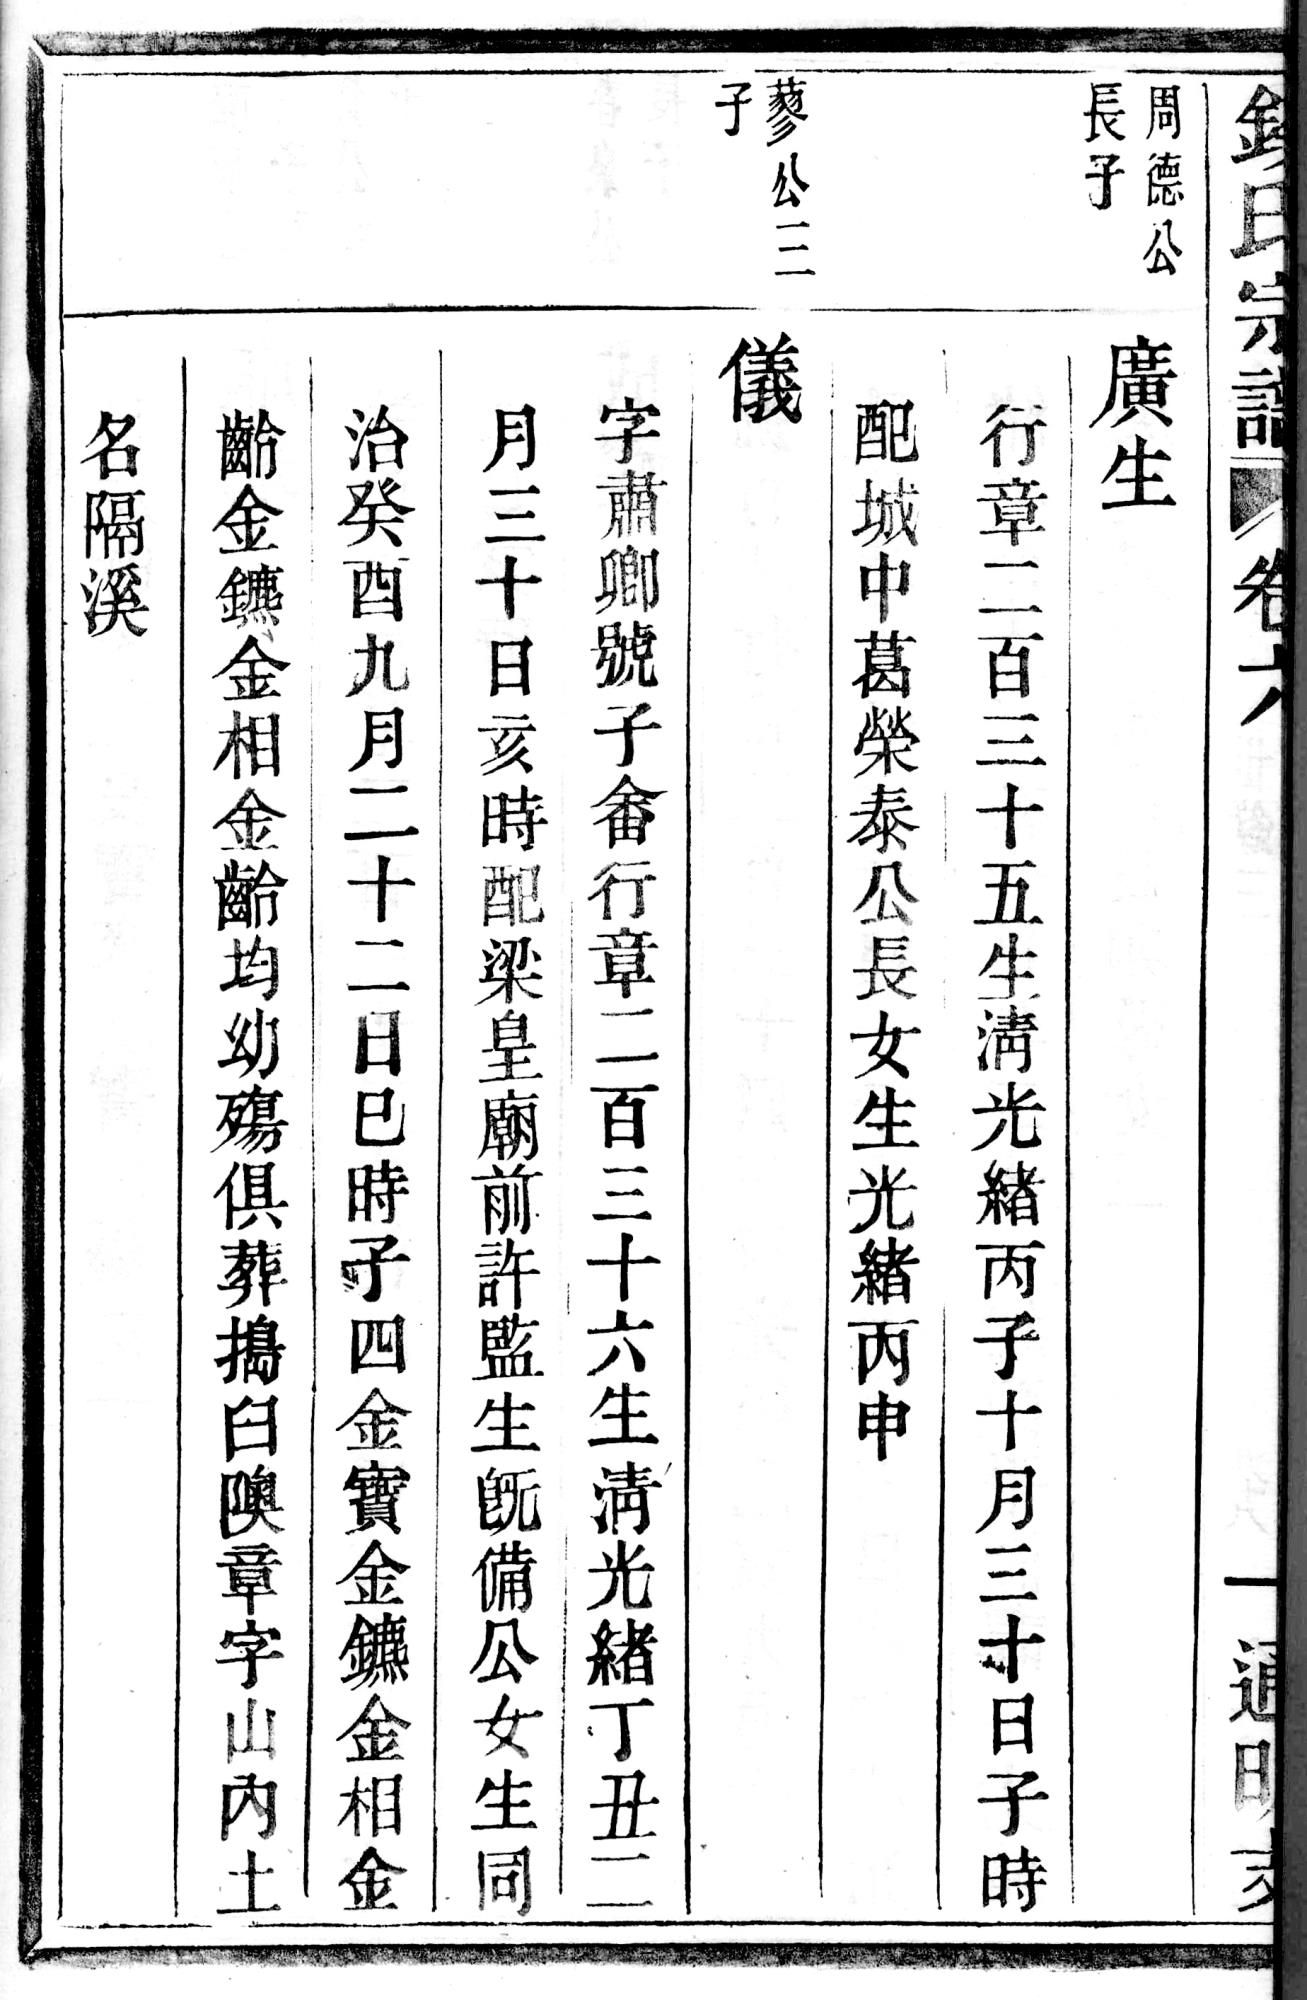 氏宗譜 卷六 一 通明支
周德公
長子
廣生
行章二百三十五生清光緒丙子十月三十日子時
配城中葛榮泰公長女生光緒丙申
蓼公三
子
儀
字肅卿號子畬行章二百三十六生清光緒丁丑二
月三十日亥時配梁皇廟前許監生旣備公女生同
治癸酉九月二十二日巳時子四金寶金鑣金相金
齡金鑣金相金齡均幼殤俱葬搗臼隩章字山內土
名隔溪